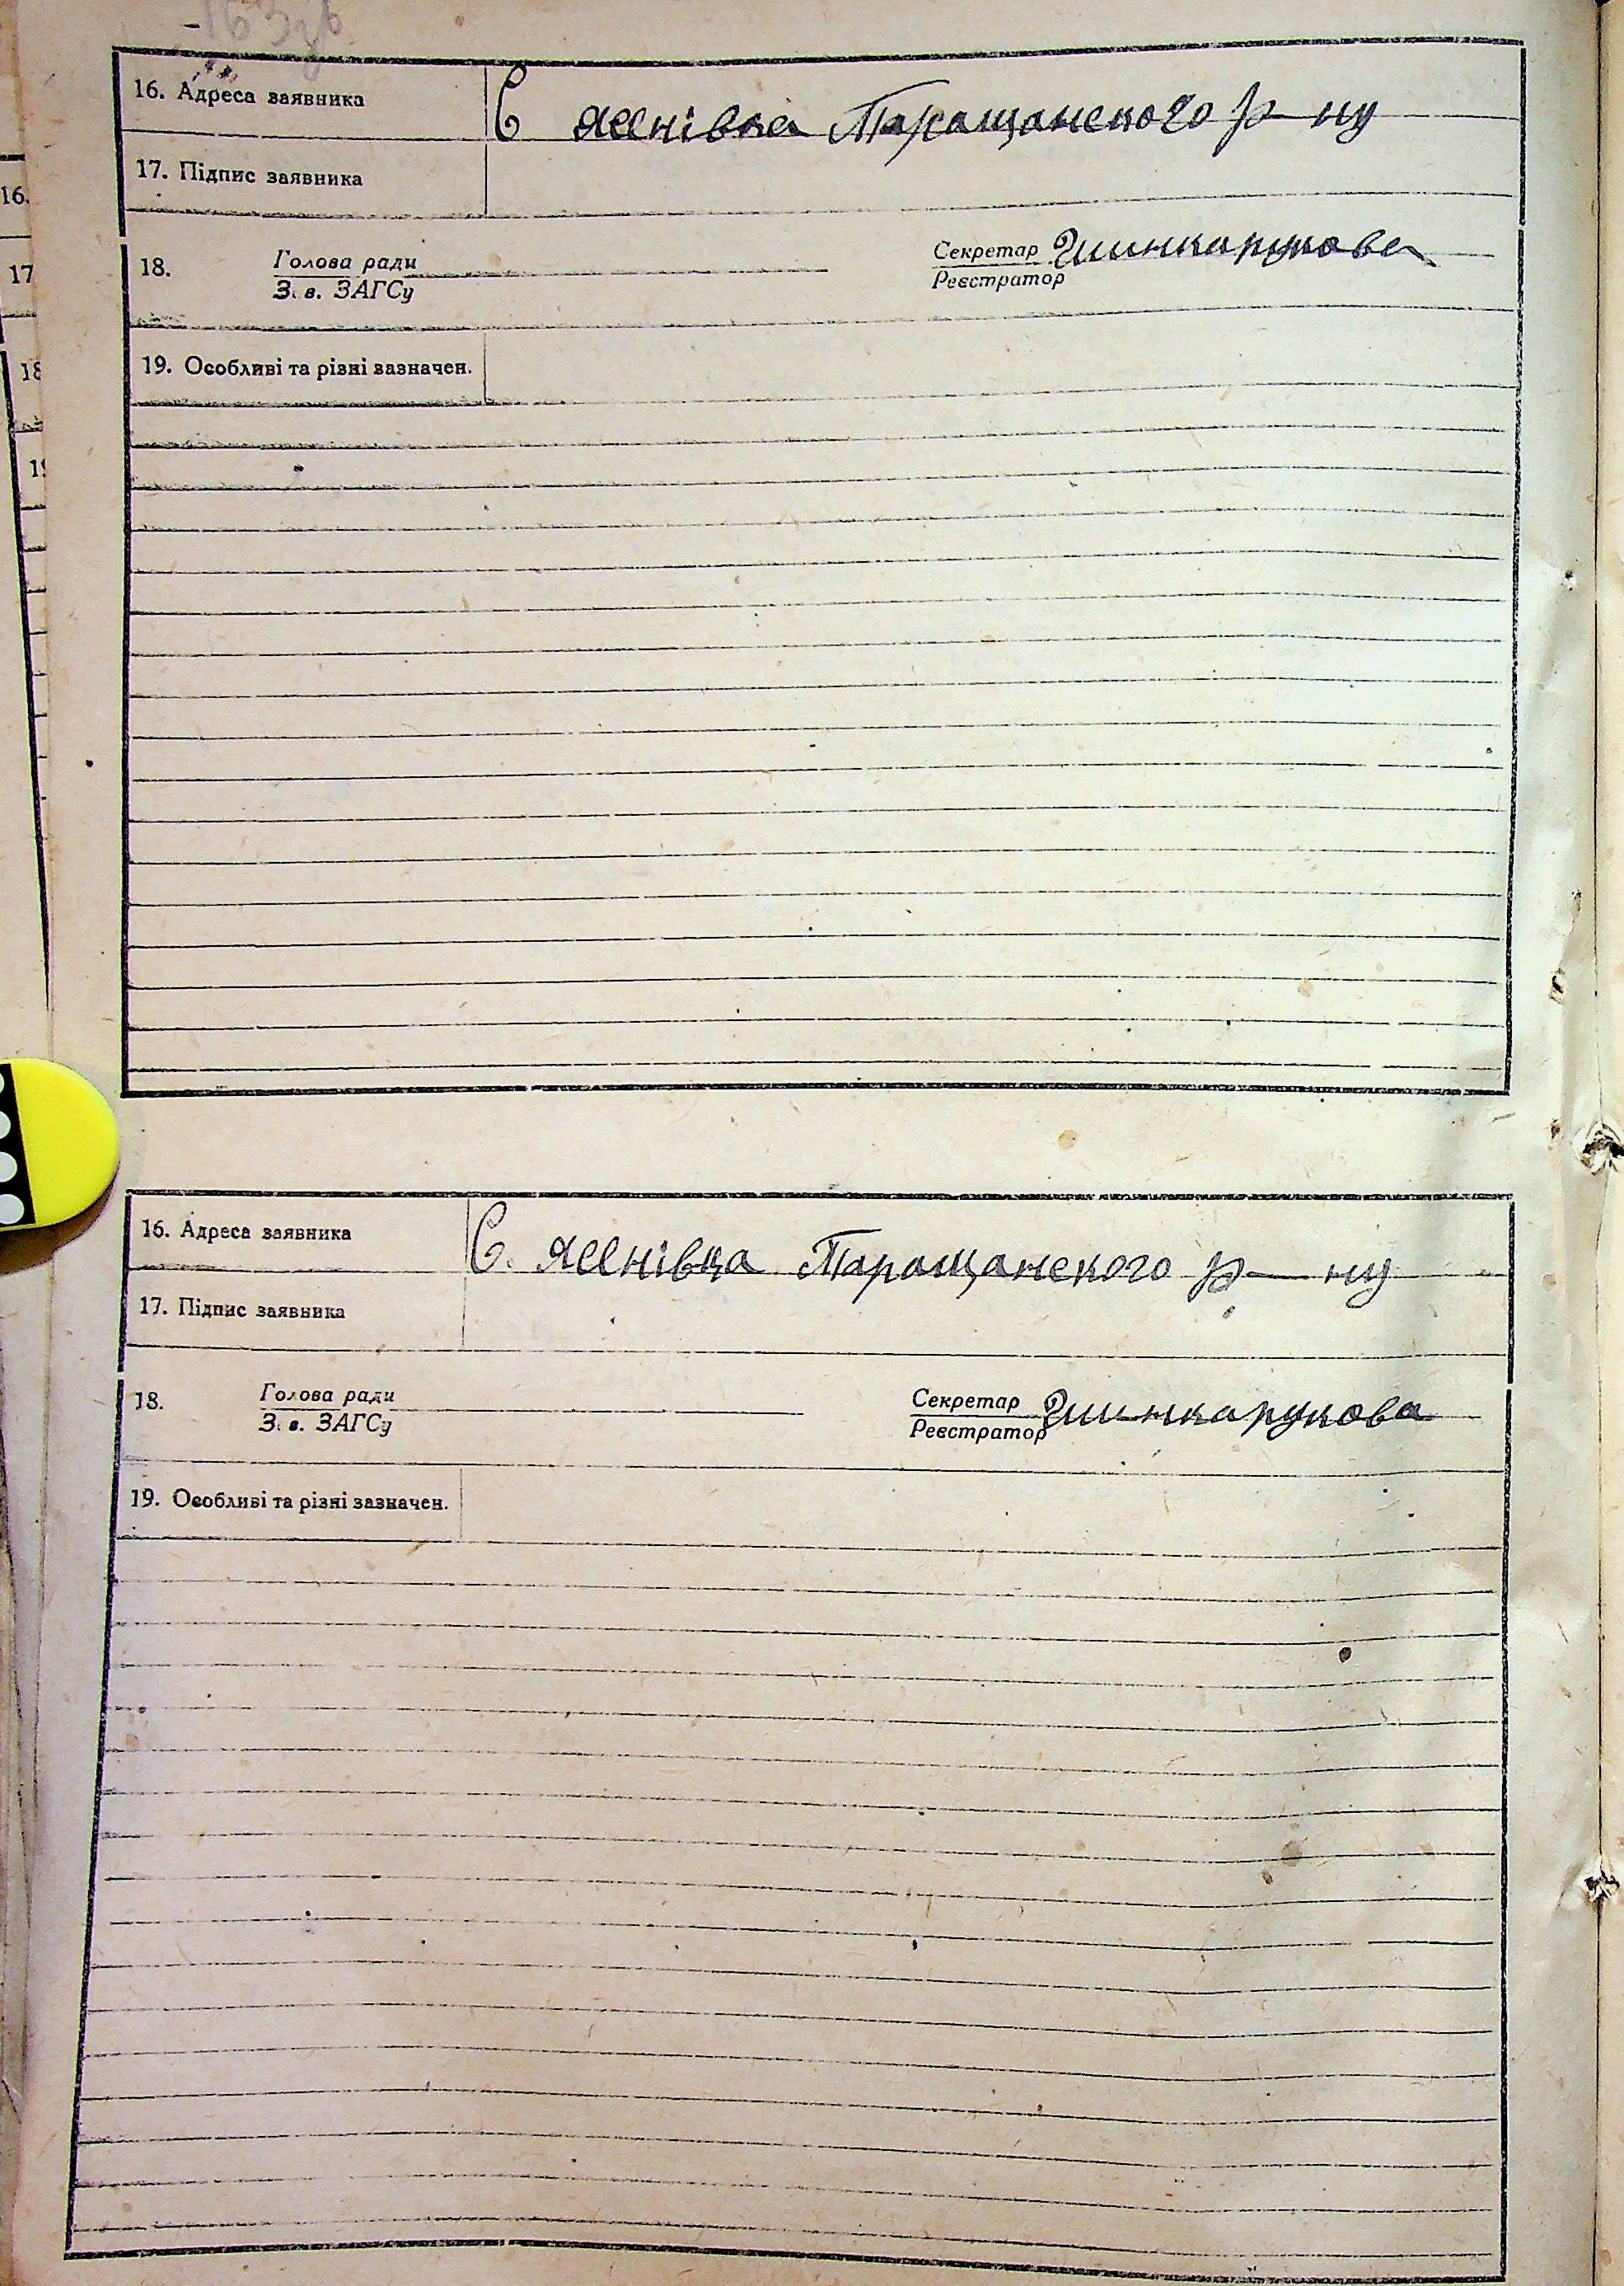 163зв
16. Адреса заявника С Ясенівка Таращанского р-ну
17. Підпис заявника
18. Голова ради Секретар Шинкарукова
З. в. ЗАГСу Реєстратор
19. Особливі та різні зазначен.
16. Адреса заявника С. Ясенівка Таращанского р-ну
17. Підпис заявника
18. Голова ради Секретар Шинкарукова
З. в. ЗАГСу Реєстратор
19. Особливі та різні зазначен.
16.
17
18
19